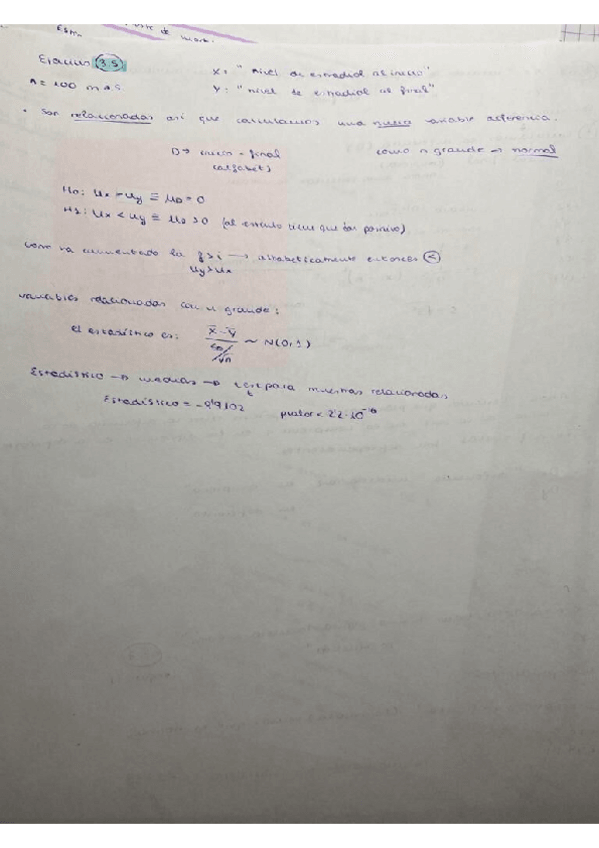 Ejercicio (3.5)
X: "nivel de estradiol al inicio"
n = 100 m.a.s.
Y: "nivel de estradiol al final"
• Son relacionadas así que calculamos una nueva variable diferencia.
D → inicio - final
(alfabet)
como n grande → normal
H0: μx - μy ≡ μD = 0
H1: μx < μy ≡ μD > 0 (al tiene que dar positivo)
como ha aumentado la → alfabeticamente entonces <
μy > μx
variables relacionadas con n grande:
el estadístico es: X̄ - Ȳ / SD/√n ~ N(0,1)
Estadístico → medias → t para muestras relacionadas
Estadístico = p valor < 2'2·10